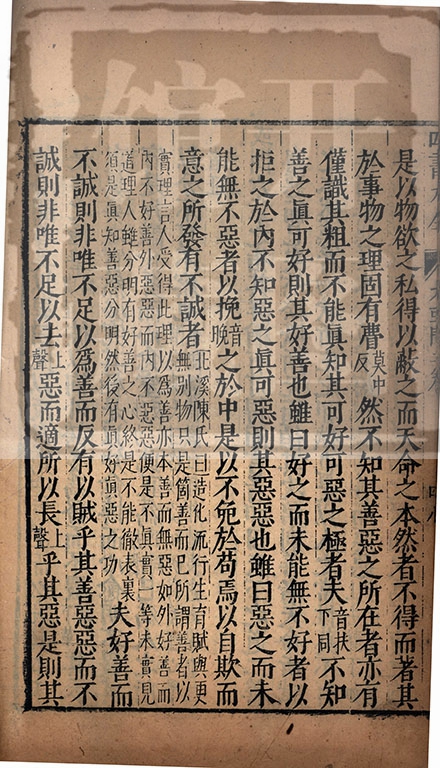 是以物欲之私得以蔽之而天命之本然者不得而著其
於事物之理固有瞢莫中反然不知其善惡之所在者亦有
僅識其粗而不能真知其可好可惡之極者夫音扶下同不知
善之真可好則其好善也雖曰好之而未能無不好者以
拒之於內不知惡之真可惡則其惡惡也雖曰惡之而未
能無不惡者以挽音晚之於中是以不免於苟焉以自欺而
意之所發有不誠者北溪陳氏曰造化流行生育賦與更
無別物只是箇善而已所謂善者以
實理言人受得此理以為善亦本善而無惡如外好善而
內不好善外惡惡而內不惡惡便是不真實一等未實見
道理人雖分明有好善之心終是不能徹表裏
須是真知善惡分明然後有真好真惡之功夫好善而
不誠則非唯不足以為善而反有以賊乎其善惡惡而不
誠則非唯不足以去上聲惡而適所以長上聲乎其惡是則其